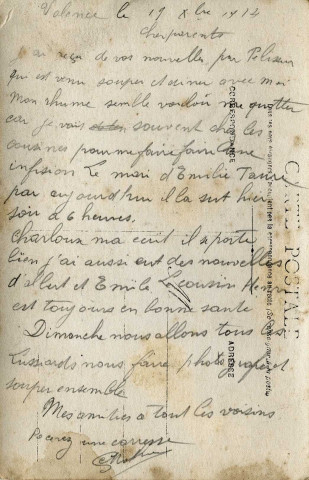 Valence le 19 Xbre 1914
Cherparents
j'ai reçu de vos nouvelles par Pelisson
qui est venu souper et diner avec moi
Mon rhume semble vouloir me quitter
car je vais souvent chez les
cousines pour me faire faire une
infusion Le mari d'Emilie
par aujourdhui il la sut hier
soir a 6 heures.
Charloux ma ecrit il se porte
bien j'ai aussi eut des nouvelles
d'albert et Emile Le cousin Henri
est toujours en bonne santé
Dimanche nous allons tous les
nous faire photographier et
souper ensemble
Mes amitiés a tout les voisins
Recevez une caresse
CARTE POSTALE
CORRESPONDANCE
ADRESSE